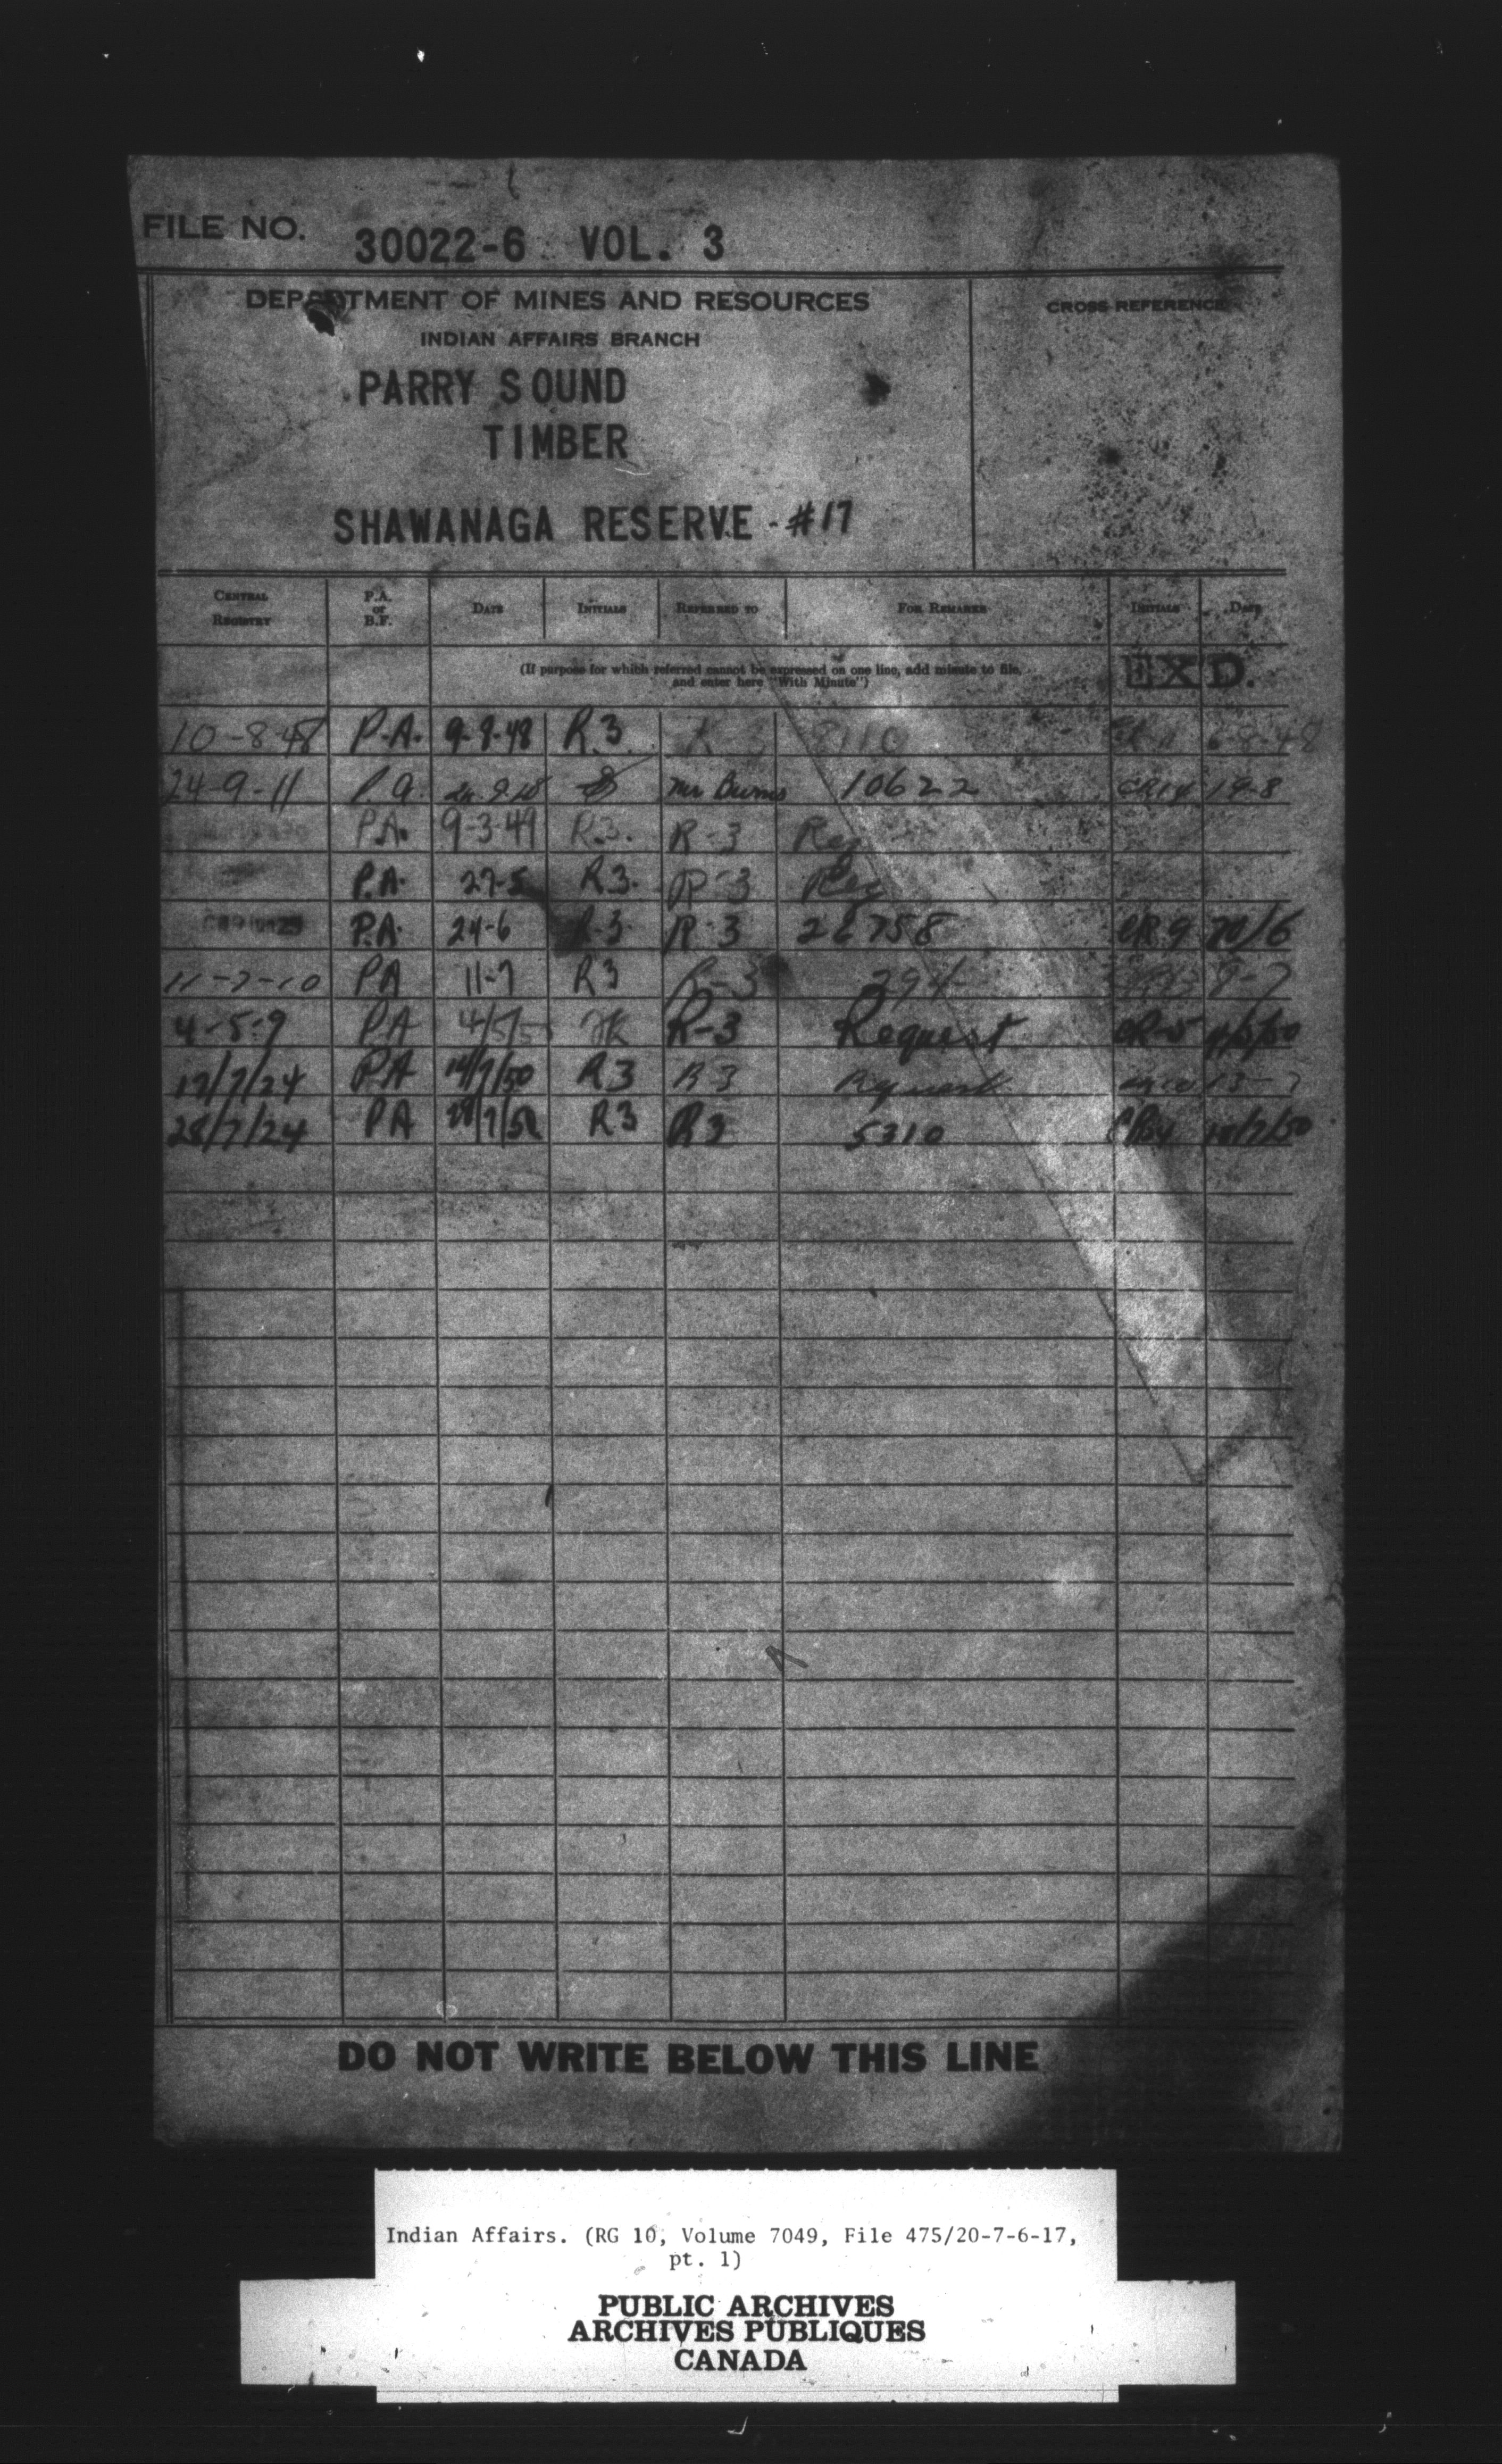 FILE NO. 30022-6 VOL. 3
DEPARTMENT OF MINES AND RESOURCES
INDIAN AFFAIRS BRANCH
CROSS REFERENCE
PARRY SOUND
TIMBER
SHAWANAGA RESERVE - #17
CENTRAL REGISTRY P.A. or B.F. DATE INITIALS REFERRED TO FOR REMARKS INITIALS DATE
(If purpose for which referred cannot be expressed on one line, add minute to file,
and enter here "With Minute")
EXD.
10-8-48 P.A. 9-8-48 R.3 R-3 8110 6-8-48
24-9-11 P.A. Mr Burns 10622 CR14 19-8
P.A. 9-3-49 R.3. R-3 Req
P.A. 27-5 R3. R-3 Req
P.A. 24-6 R-3 R-3 26758 CR.9 20/6
11-7-10 PA 11-7 R3 R-3 294 9-7
4-5-9 PA 4/5/50 R-3 Request CR-5 4/5/50
17/7/24 PA 14/7/50 R3 R3 Request 13-7
28/7/24 PA R3 R3 5310
DO NOT WRITE BELOW THIS LINE
Indian Affairs. (RG 10, Volume 7049, File 475/20-7-6-17,
pt. 1)
PUBLIC ARCHIVES
ARCHIVES PUBLIQUES
CANADA